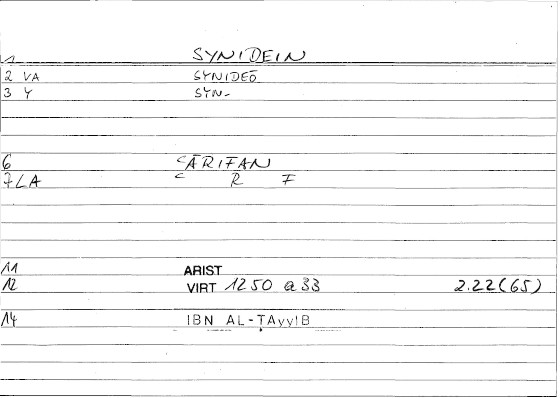 1 SYNIDEIN
2 VA SYNIDEŌ
3 Y SYN-
6 ʿĀRIFAN
7 LA ʿ R F
11 ARIST
12 VIRT 1250 a 33 2.22(65)
14 IBN AL-ṬAyyIB